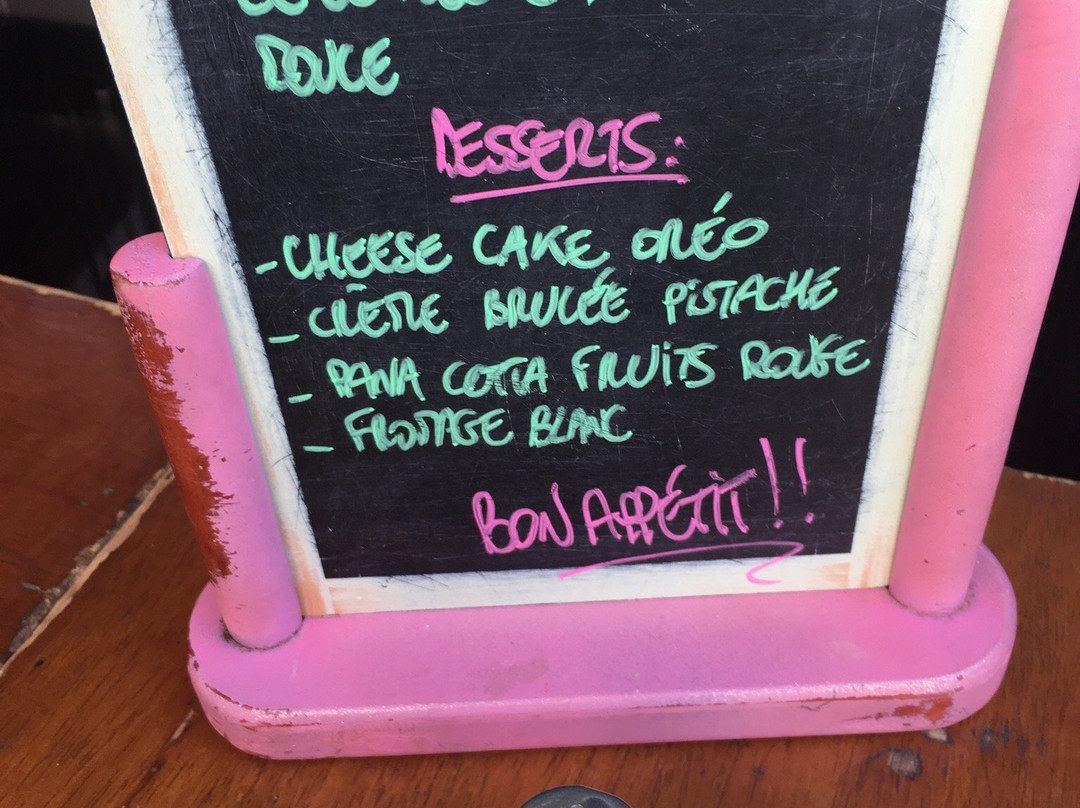 DOUCE
DESSERTS:
-CHEESE CAKE ORÉO
- CRÈME BRULÉE PISTACHE
- PANA COTTA FRUITS ROUGE
- FROMAGE BLANC
BON APPÉTIT!!